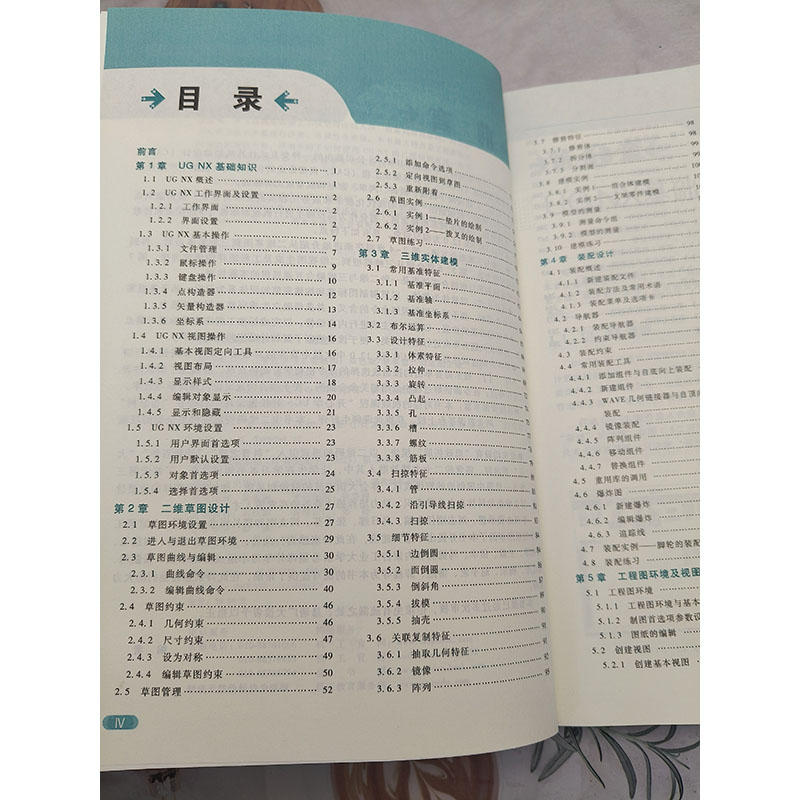 目 录
前言
第1章 UG NX 基础知识 1
1.1 UG NX 概述 1
1.2 UG NX 工作界面及设置 2
1.2.1 工作界面 2
1.2.2 界面设置 2
1.3 UG NX 基本操作 7
1.3.1 文件管理 7
1.3.2 鼠标操作 9
1.3.3 键盘操作 10
1.3.4 点构造器 12
1.3.5 矢量构造器 13
1.3.6 坐标系 14
1.4 UG NX 视图操作 16
1.4.1 基本视图定向工具 16
1.4.2 视图布局 17
1.4.3 显示样式 18
1.4.4 编辑对象显示 20
1.4.5 显示和隐藏 21
1.5 UG NX 环境设置 23
1.5.1 用户界面首选项 23
1.5.2 用户默认设置 23
1.5.3 对象首选项 24
1.5.4 选择首选项 25
第2章 二维草图设计 27
2.1 草图环境设置 27
2.2 进入与退出草图环境 29
2.3 草图曲线与编辑 30
2.3.1 曲线命令 30
2.3.2 编辑曲线命令 40
2.4 草图约束 46
2.4.1 几何约束 46
2.4.2 尺寸约束 47
2.4.3 设为对称 49
2.4.4 编辑草图约束 50
2.5 草图管理 52
IV
2.5.1 添加命令选项
2.5.2 定向视图到草图
2.5.3 重新附着
2.6 草图实例
2.6.1 实例1——垫片的绘制
2.6.2 实例2——拨叉的绘制
2.7 草图练习
第3章 三维实体建模
3.1 常用基准特征
3.1.1 基准平面
3.1.2 基准轴
3.1.3 基准坐标系
3.2 布尔运算
3.3 设计特征
3.3.1 体素特征
3.3.2 拉伸
3.3.3 旋转
3.3.4 凸起
3.3.5 孔
3.3.6 槽
3.3.7 螺纹
3.3.8 筋板
3.4 扫掠特征
3.4.1 管
3.4.2 沿引导线扫掠
3.4.3 扫掠
3.5 细节特征
3.5.1 边倒圆
3.5.2 面倒圆
3.5.3 倒斜角
3.5.4 拔模
3.5.5 抽壳
3.6 关联复制特征
3.6.1 抽取几何特征
3.6.2 镜像
3.6.3 阵列
3.7 修剪特征 98
3.7.1 修剪体 98
3.7.2 拆分体
3.7.3 分割面
3.8 建模实例
3.8.1 实例1——组合体建模
3.8.2 实例2——支架零件建模
3.9 模型的测量
3.9.1 测量命令组
3.9.2 模型的测量
3.10 建模练习
第4章 装配设计
4.1 装配概述
4.1.1 新建装配文件
4.1.2 装配方法及常用术语
4.1.3 装配菜单及选项卡
4.2 导航器
4.2.1 装配导航器
4.2.2 约束导航器
4.3 装配约束
4.4 常用装配工具
4.4.1 添加组件与自底向上装配
4.4.2 新建组件
4.4.3 WAVE 几何链接器与自顶向
装配
4.4.4 镜像装配
4.4.5 阵列组件
4.4.6 移动组件
4.4.7 替换组件
4.5 重用库的调用
4.6 爆炸图
4.6.1 新建爆炸
4.6.2 编辑爆炸
4.6.3 追踪线
4.7 装配实例——脚轮的装配
4.8 装配练习
第5章 工程图环境及视图
5.1 工程图环境
5.1.1 工程图环境与基本
5.1.2 制图首选项参数设
5.1.3 图纸的编辑
5.2 创建视图
5.2.1 创建基本视图